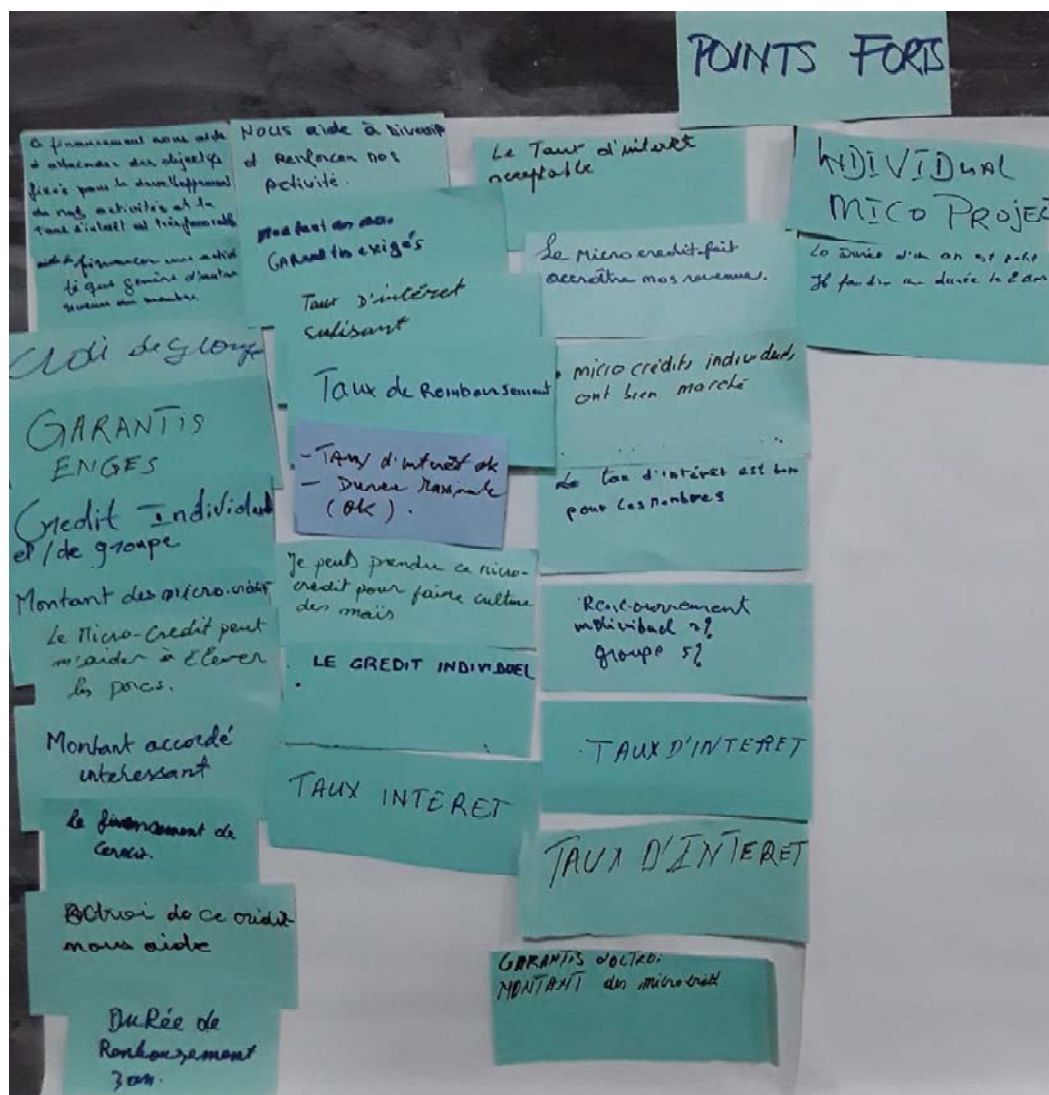 POINTS FORTS
financement nous aide
à atteindre des objectifs
fixés pour le developpement
de nos activités et le
taux d'intérêt est très favorable
financer une activi
té que genère d'autre
Credi de groupe
GARANTIS
ENGES
Credit Individuel
et / de groupe
Montant des micro-crédit
Le Micro-Credit peut
m'aider à Elever
les porcs.
Montant accordé
intéressant
le financement de
Octroi de ce crédit
nous aide
DuRée de
Rembousement
3 am.
NOUS aide à
et Renforcer nos
Activité.
exigés
Taux D'intéret
sufisant
Taux de Remboursement
- TAux d'intérêt ok
- Duree
(OK).
Je peut prendre ce micro-
crédit pour faire culture
des maïs
LE CREDIT INDIVIDUEL
TAUX INTERET
Le Taux d'intéret
acceptable
Le Micro credit fait
accroître mos revenues.
micro crédits individuels
ont bien marché
Le taux d'intéret est bon
pour les membres
individuel 2%
groupe 5%
TAUX D'INTERET
TAUX D'INTERET
GARANTIS D'OCTROI
MONTANT des microcrédit
INDIVIDUAL
MICO PROJEC
La durée d'un an est petit
Il faudra une durée de 2 ans